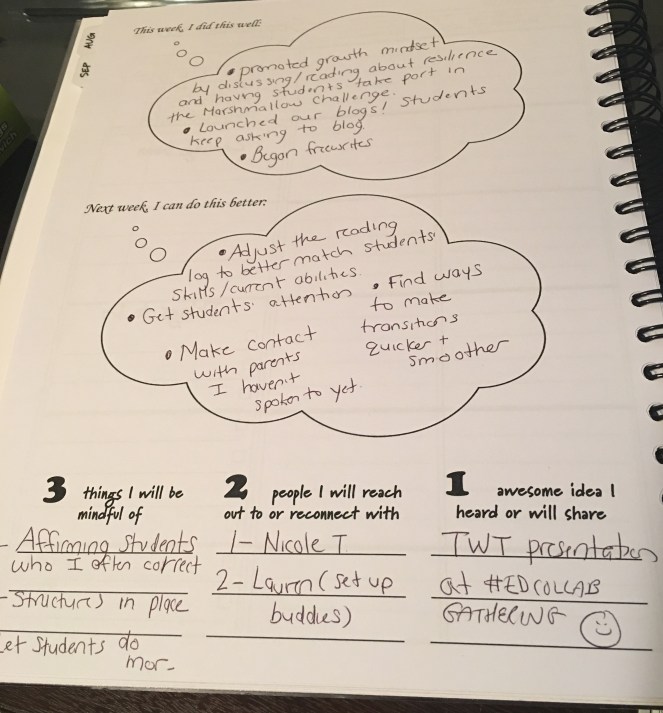 SEP AUG
This week, I did this well:
• promoted growth mindset
by discussing/reading about resilience
and having students take part in
the Marshmallow Challenge.
• Launched our blogs! Students
keep asking to blog
• Began freewrites
Next week, I can do this better:
• Adjust the reading
log to better match students'
skills/current abilities.
• Get students' attention
• Find ways
to make
transitions
quicker +
smoother
• Make contact
with parents
I haven't
spoken to yet.
3 things I will be
mindful of
- Affirming students
who I often correct
- Structures in place
et students do
mor-
2 people I will reach
out to or reconnect with
1- Nicole T
2- Lauren (set up
buddies)
1 awesome idea I
heard or will share
TWT presentation
at #EDCOLLAB
GATHERING